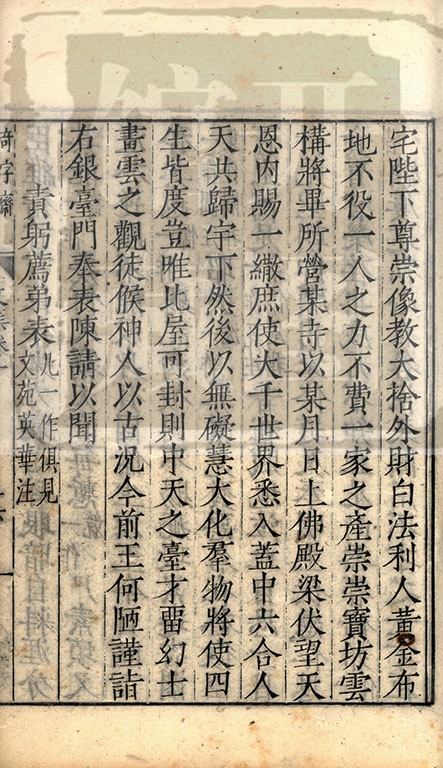 宅陛下尊崇像教大捨外財白法利人黃金布
地不役一人之力不費一家之產崇崇寶坊雲
構將畢所營某寺以某月日上佛殿梁伏望天
恩內賜一繖庶使大千世界悉入蓋中六合人
天共歸宇下然後以無礙慧大化羣物將使四
生皆度豈唯比屋可封則中天之臺才畱幻士
畵雲之觀徒候神人以古況今前王何陋謹詣
右銀臺門奉表陳請以聞
責躬薦弟表
凡一作俱見
文苑英華注
奇字齋